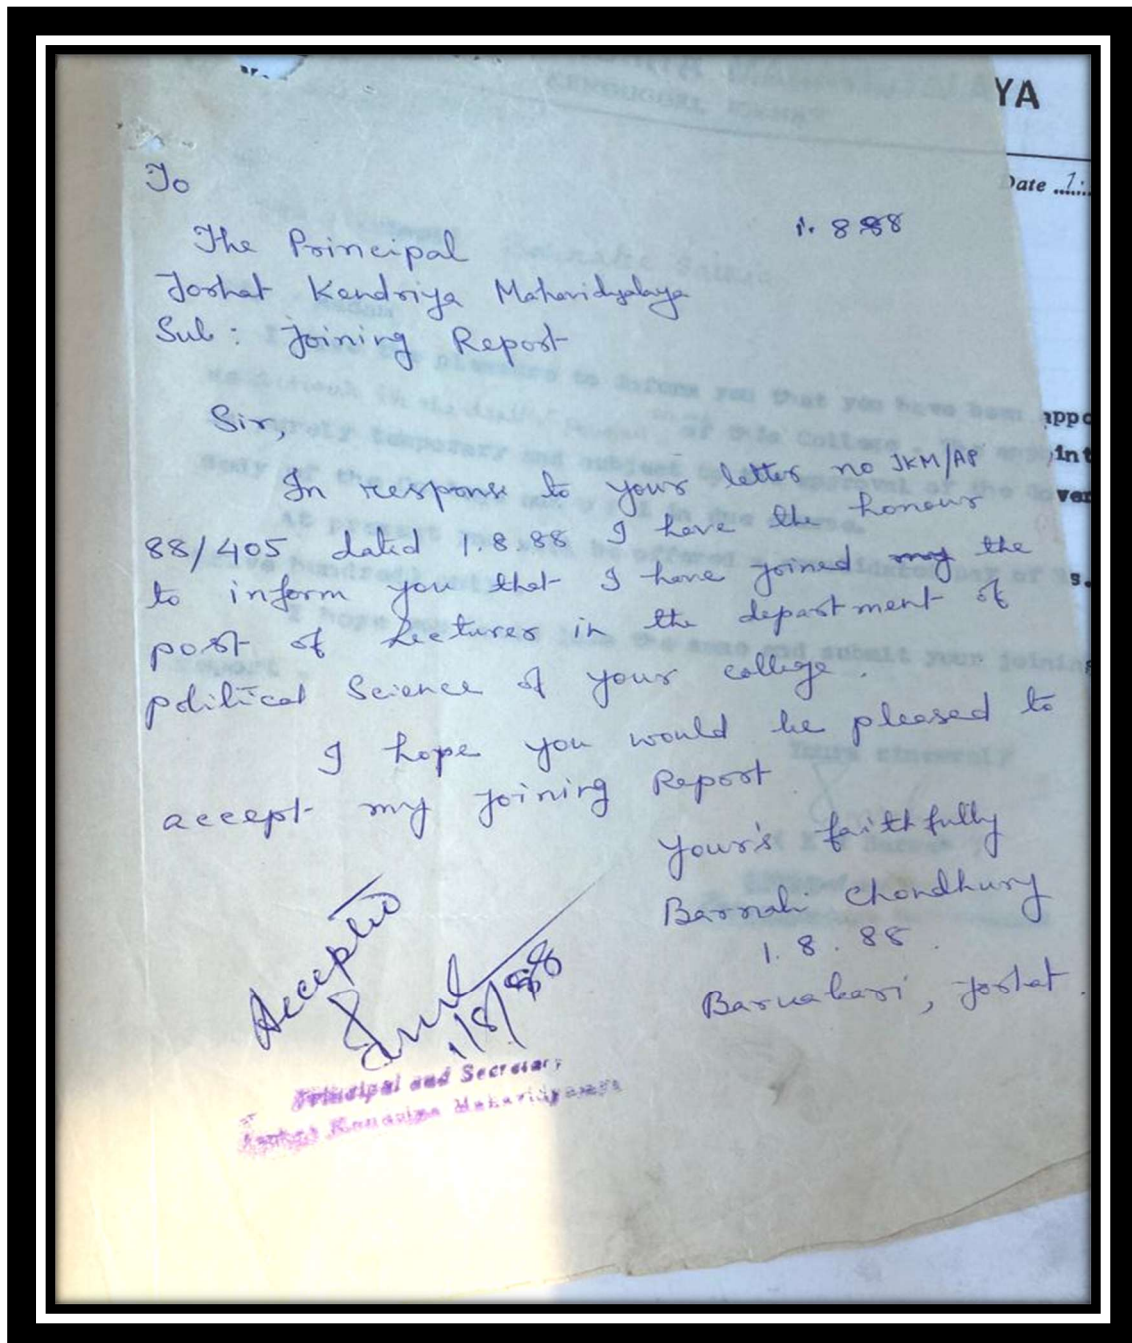 YA
Date 1.
To
1. 8 88
The Principal
Jorhat Kendriya Mahavidyalaya
Sub : Joining Report
Sir,
In response to your letter no JKM/AP
88/405 dated 1.8.88 I have the honour
to inform you that I have joined my the
post of Lecturer in the department of
political Science of your college.
I hope you would be pleased to
accept my joining Report
Your's faithfully
Barnali Chondhury
1. 8. 88.
Baruabari, Jorhat.
Accepted
1/8/88
Principal and Secretary
Jorhat Kendriya Mahavidyalaya
appo
int
ver
s.